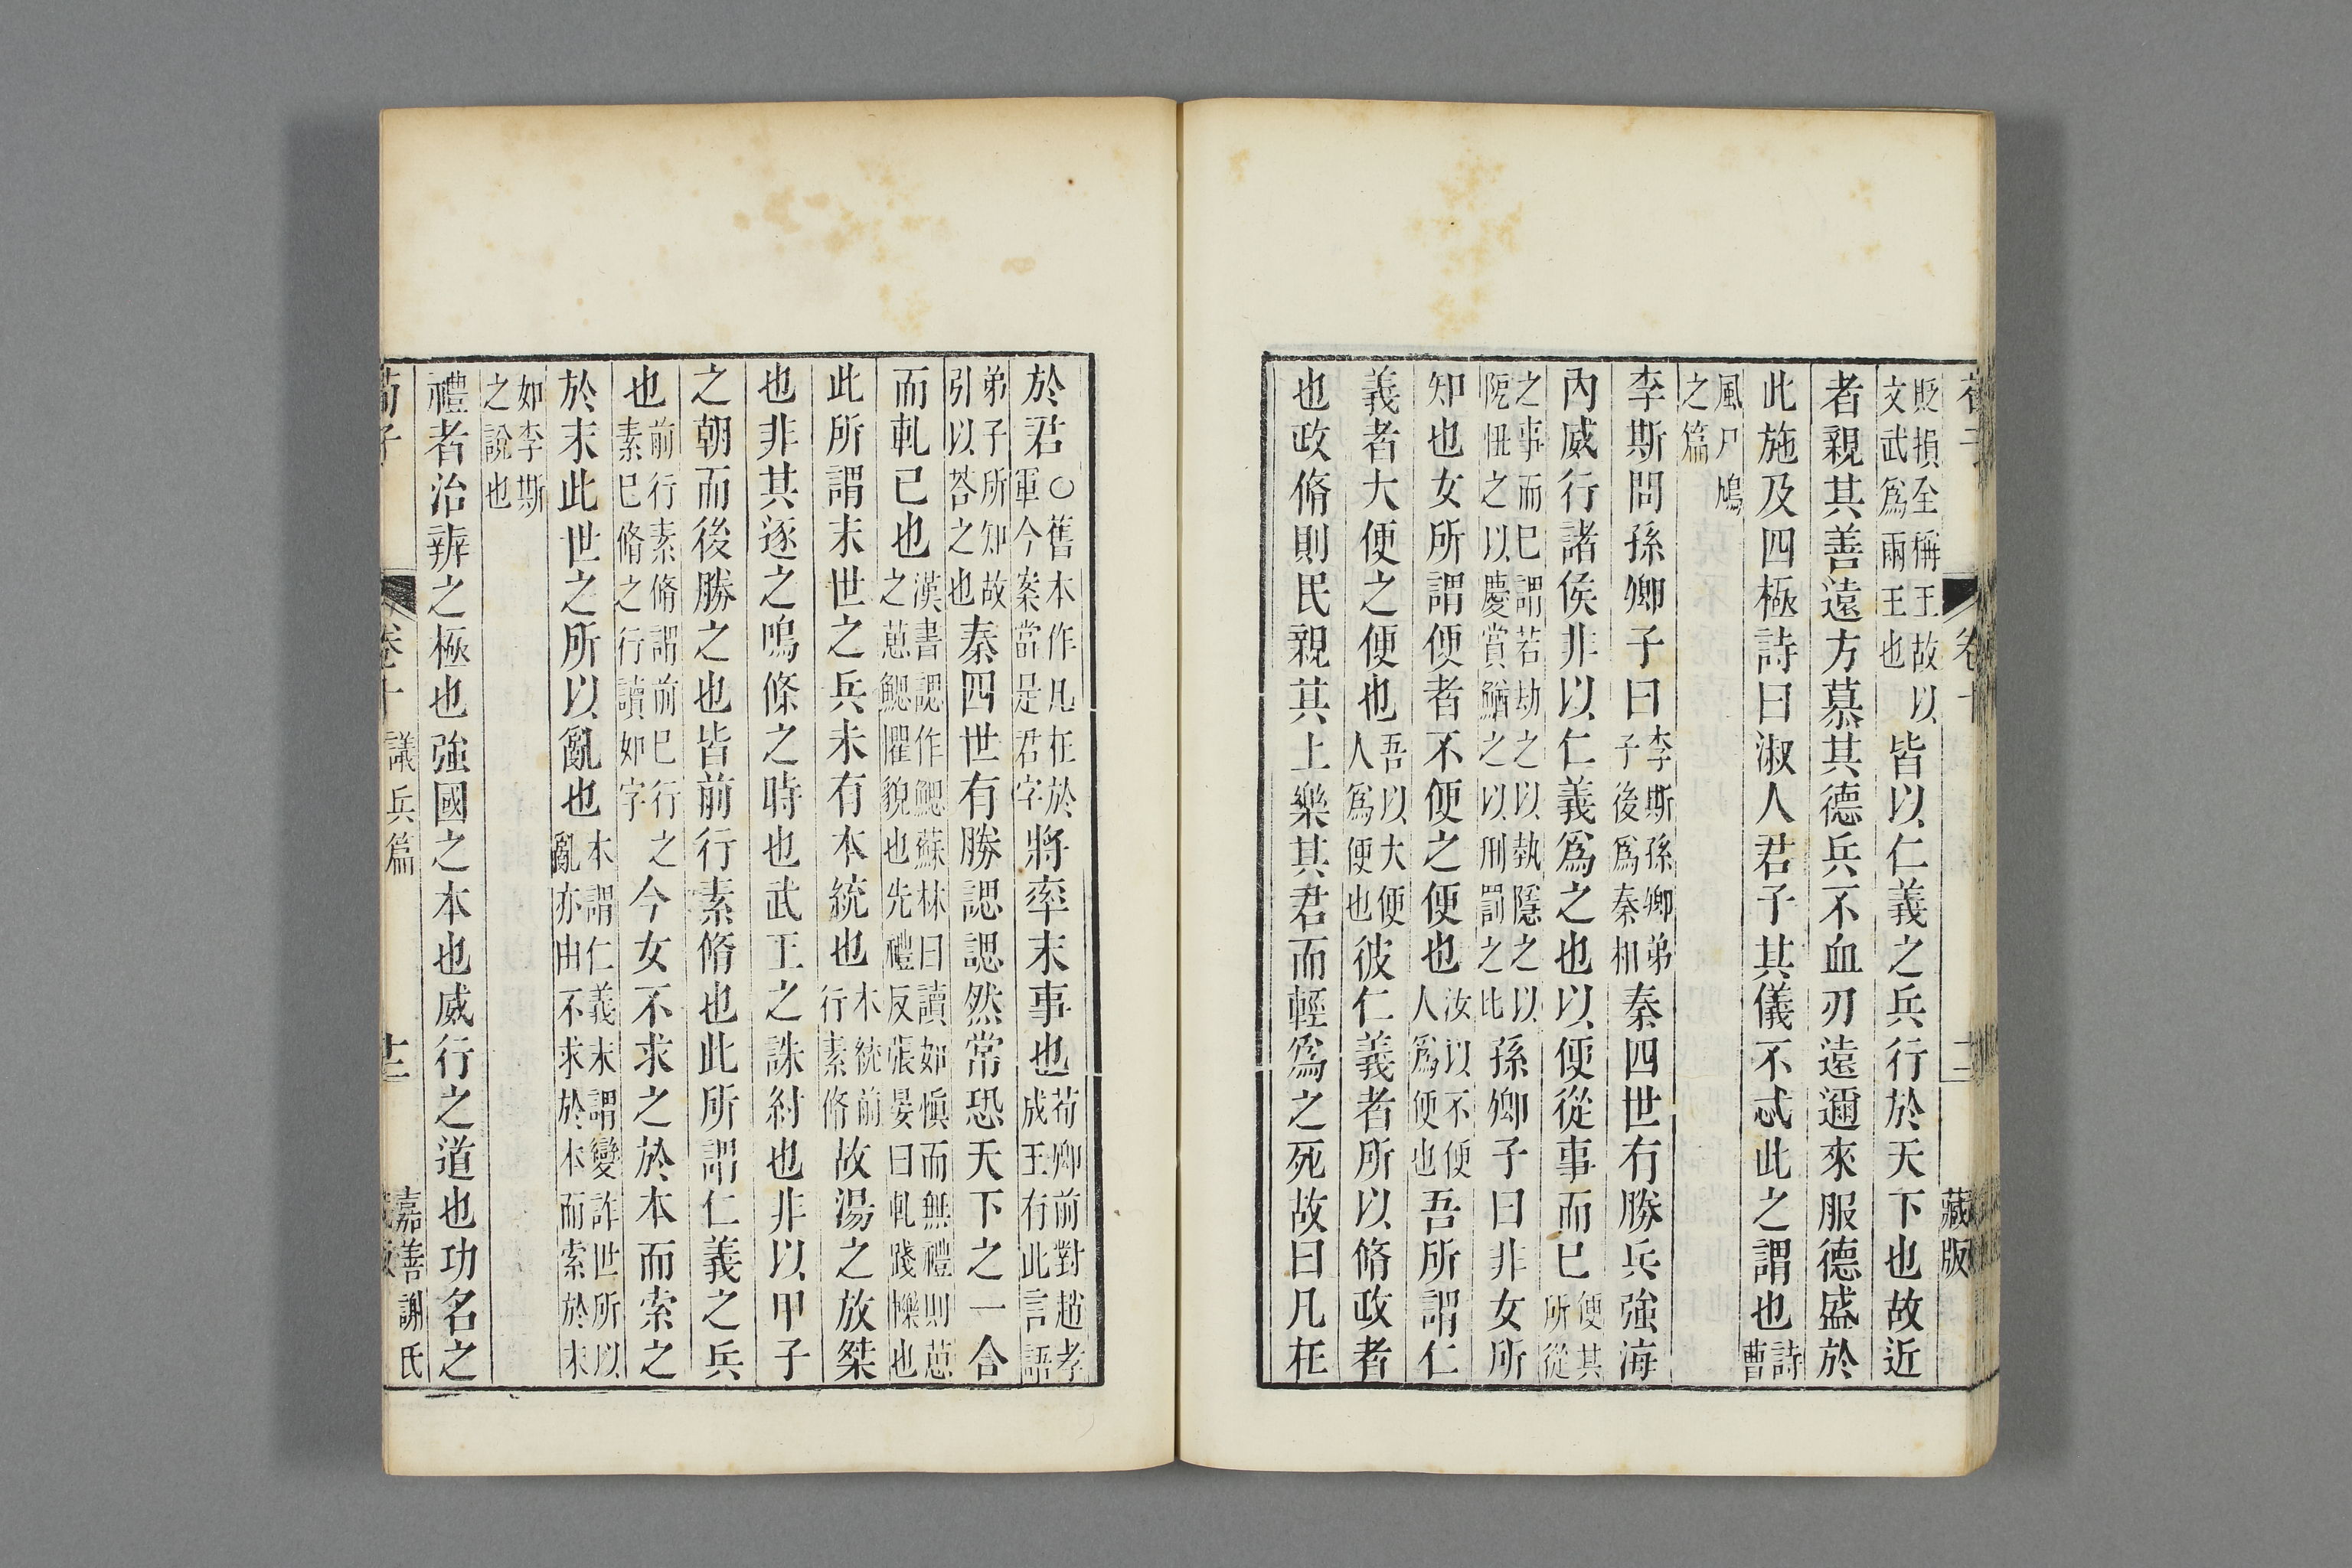 卷十 藏版
貶損全稱王故以文武爲兩王也皆以仁義之兵行於天下也故近
者親其善遠方慕其德兵不血刃遠邇來服德盛於
此施及四極詩曰淑人君子其儀不忒此之謂也詩曹
風尸鳩之篇
李斯問孫卿子曰李斯孫卿弟子後爲秦相秦四世有勝兵強海
內威行諸侯非以仁義爲之也以便從事而已便其所從
之事而已謂若劫之以埶隱之以阸忸之以慶賞鰌之以刑罰之比孫卿子曰非女所
知也女所謂便者不便之便也汝以不便人爲便也吾所謂仁
義者大便之便也吾以大便人爲便也彼仁義者所以脩政者
也政脩則民親其上樂其君而輕爲之死故曰凡在
於君○舊本作凡在於軍今案當是君字將率末事也荀卿前對趙孝成王有此言語
弟子所知故引以荅之也秦四世有勝諰諰然常恐天下之一合
而軋已也漢書諰作鰓蘇林曰讀如愼而無禮則葸之葸鰓懼貌也先禮反張晏曰軋踐轢也
此所謂末世之兵未有本統也本統前行素脩故湯之放桀
也非其逐之鳴條之時也武王之誅紂也非以甲子
之朝而後勝之也皆前行素脩也此所謂仁義之兵
也前行素脩謂前已行之素已脩之行讀如字今女不求之於本而索之
於末此世之所以亂也本謂仁義末謂變詐世所以亂亦由不求於本而索於末
如李斯之說也
禮者治辨之極也強國之本也威行之道也功名之
荀子 卷十 議兵篇 十二 嘉善謝氏